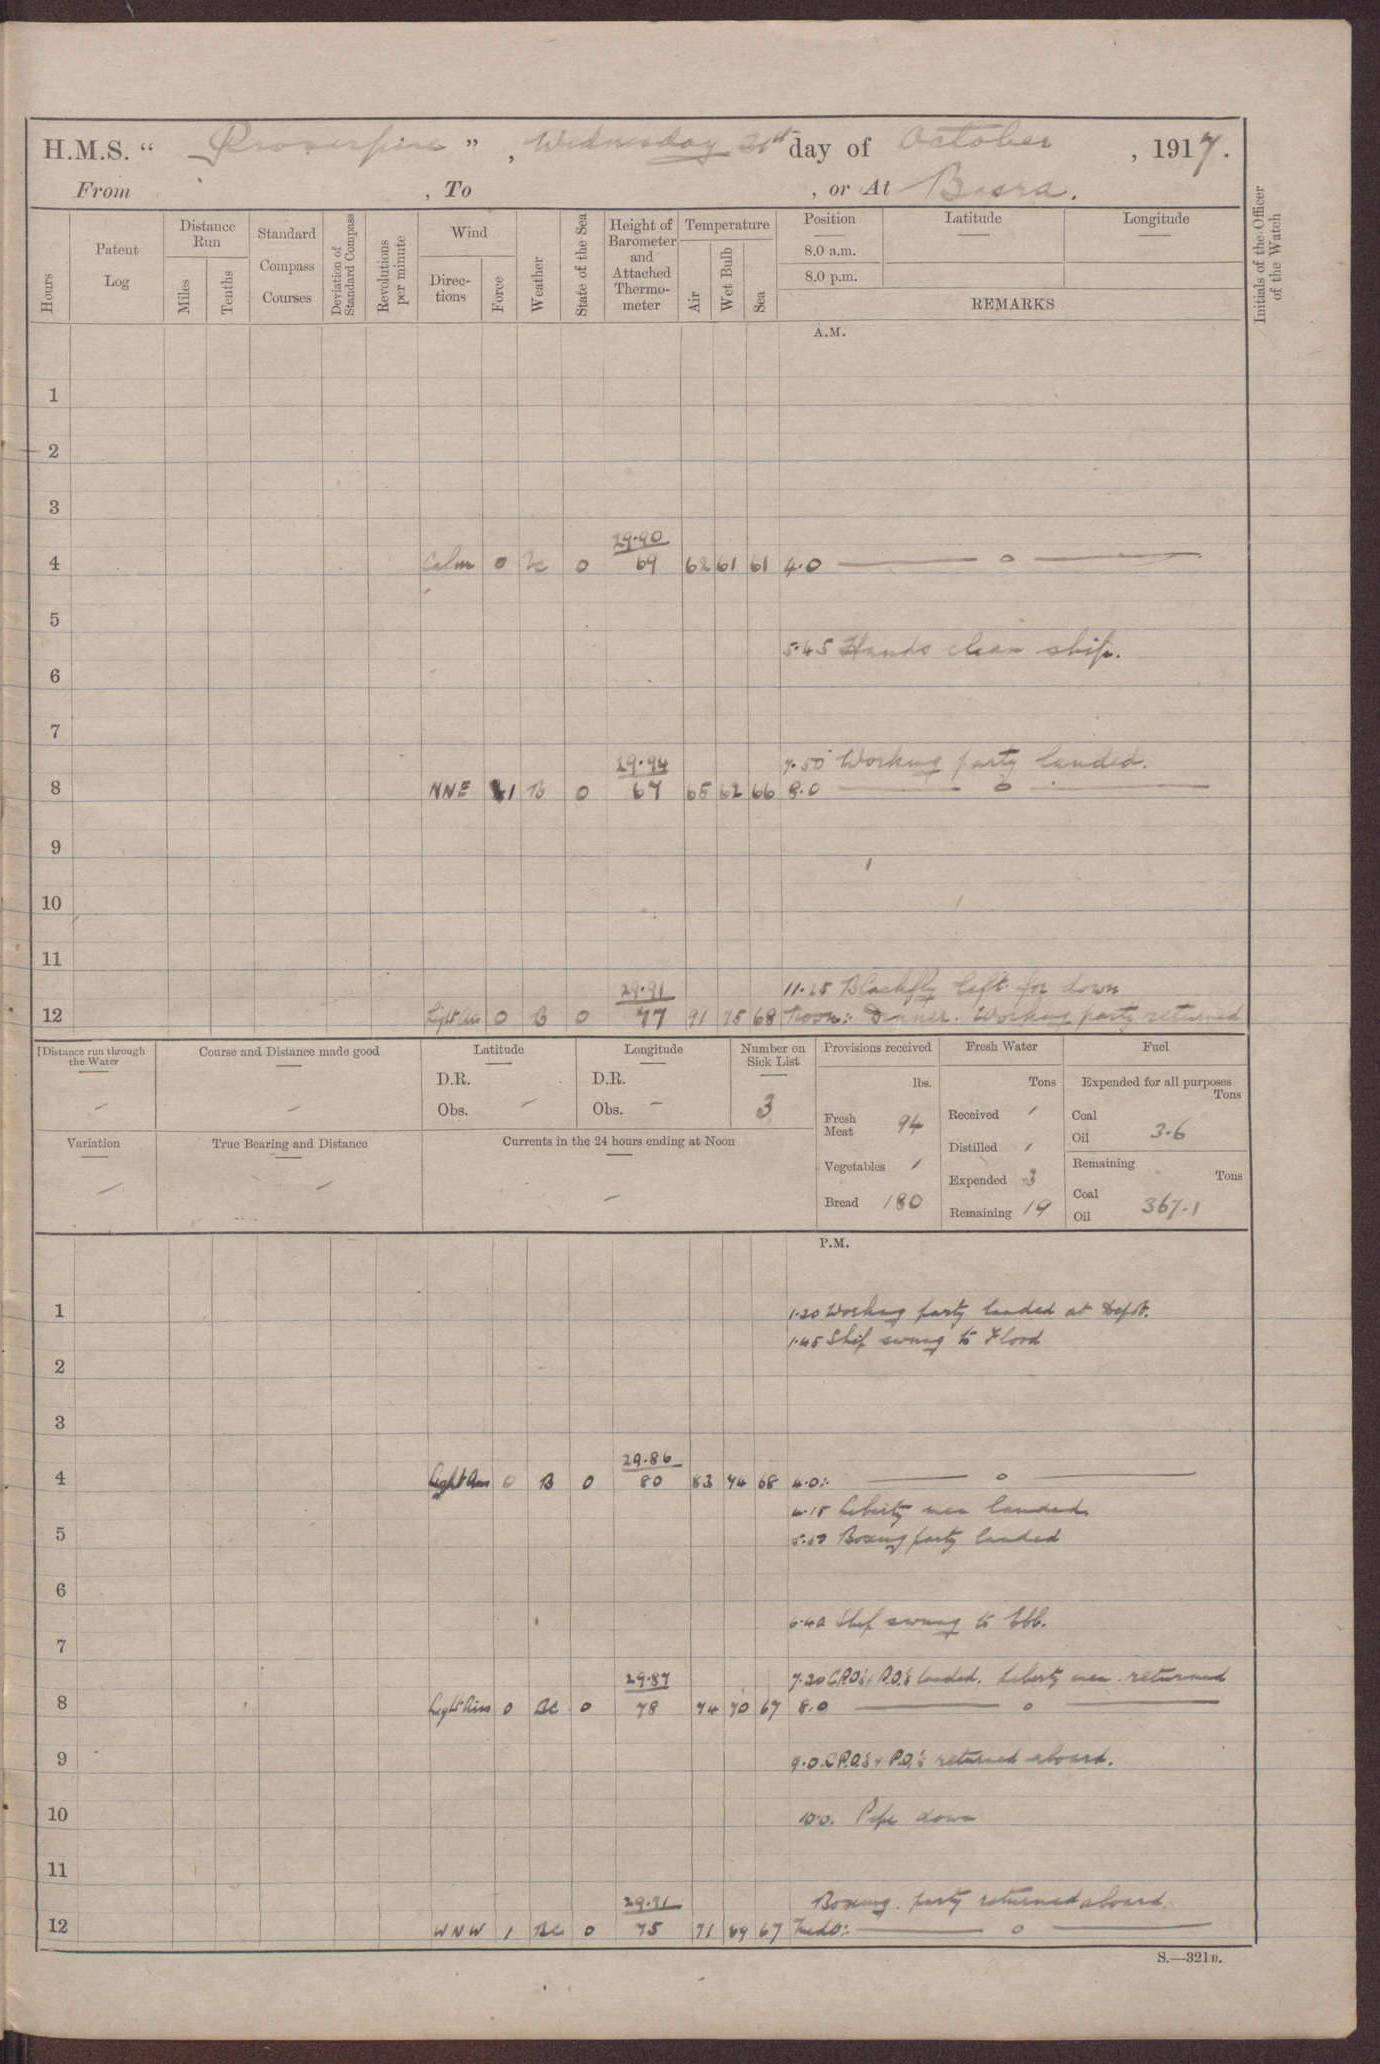 H.M.S. “ Proserpine ” , Wednesday 31st day of October , 1917.
From , To , or At Basra.
Hours
Patent Log
Distance Run
Miles
Tenths
Standard Compass Courses
Deviation of Standard Compass
Revolutions per minute
Wind
Directions
Force
Weather
State of the Sea
Height of Barometer and Attached Thermometer
Temperature
Air
Wet Bulb
Sea
Position
8.0 a.m.
8.0 p.m.
Latitude
Longitude
REMARKS
Initials of the Officer of the Watch
A.M.
1
2
3
29.90
4 Calm 0 bc 0 69 62 61 61 4.0 — o —
5
5.45 Hands clean ship.
6
7
29.94 7.50 Working party landed.
8 NNE 1 B 0 67 65 62 66 8.0 — o —
9
10
11
29.91 11.25 Blackfly left for down
12 Light Airs 0 B 0 77 91 75 68 Noon:- Dinner. Working party returned
Distance run through the Water
Course and Distance made good
Latitude
D.R.
Obs. –
Longitude
D.R.
Obs. –
Number on Sick List
3
Variation
True Bearing and Distance
Currents in the 24 hours ending at Noon
Provisions received
lbs.
Fresh Meat 94
Vegetables /
Bread 180
Fresh Water
Tons
Received /
Distilled /
Expended 3
Remaining 19
Fuel
Expended for all purposes
Tons
Coal
Oil 3.6
Remaining
Tons
Coal
Oil 367.1
P.M.
1 1.20 Working party landed at Depôt.
1.45 Ship swung to Flood
2
3
29.86
4 Light Airs 0 B 0 80 83 74 68 4.0:- — o —
4.15 Liberty men landed.
5 Boxing party landed
6
6.40 Ship swung to Ebb.
7
29.87 7.20 C.P.O's & P.O.'s landed. Liberty men returned
8 Light Airs 0 BC 0 78 74 70 67 8.0 — o —
9 9.0. C.P.O.'s & P.O.'s returned aboard.
10 10.0. Pipe down
11
29.91 Boxing party returned aboard.
12 WNW 1 BC 0 75 71 69 67 Midt:- — o —
S.—321B.